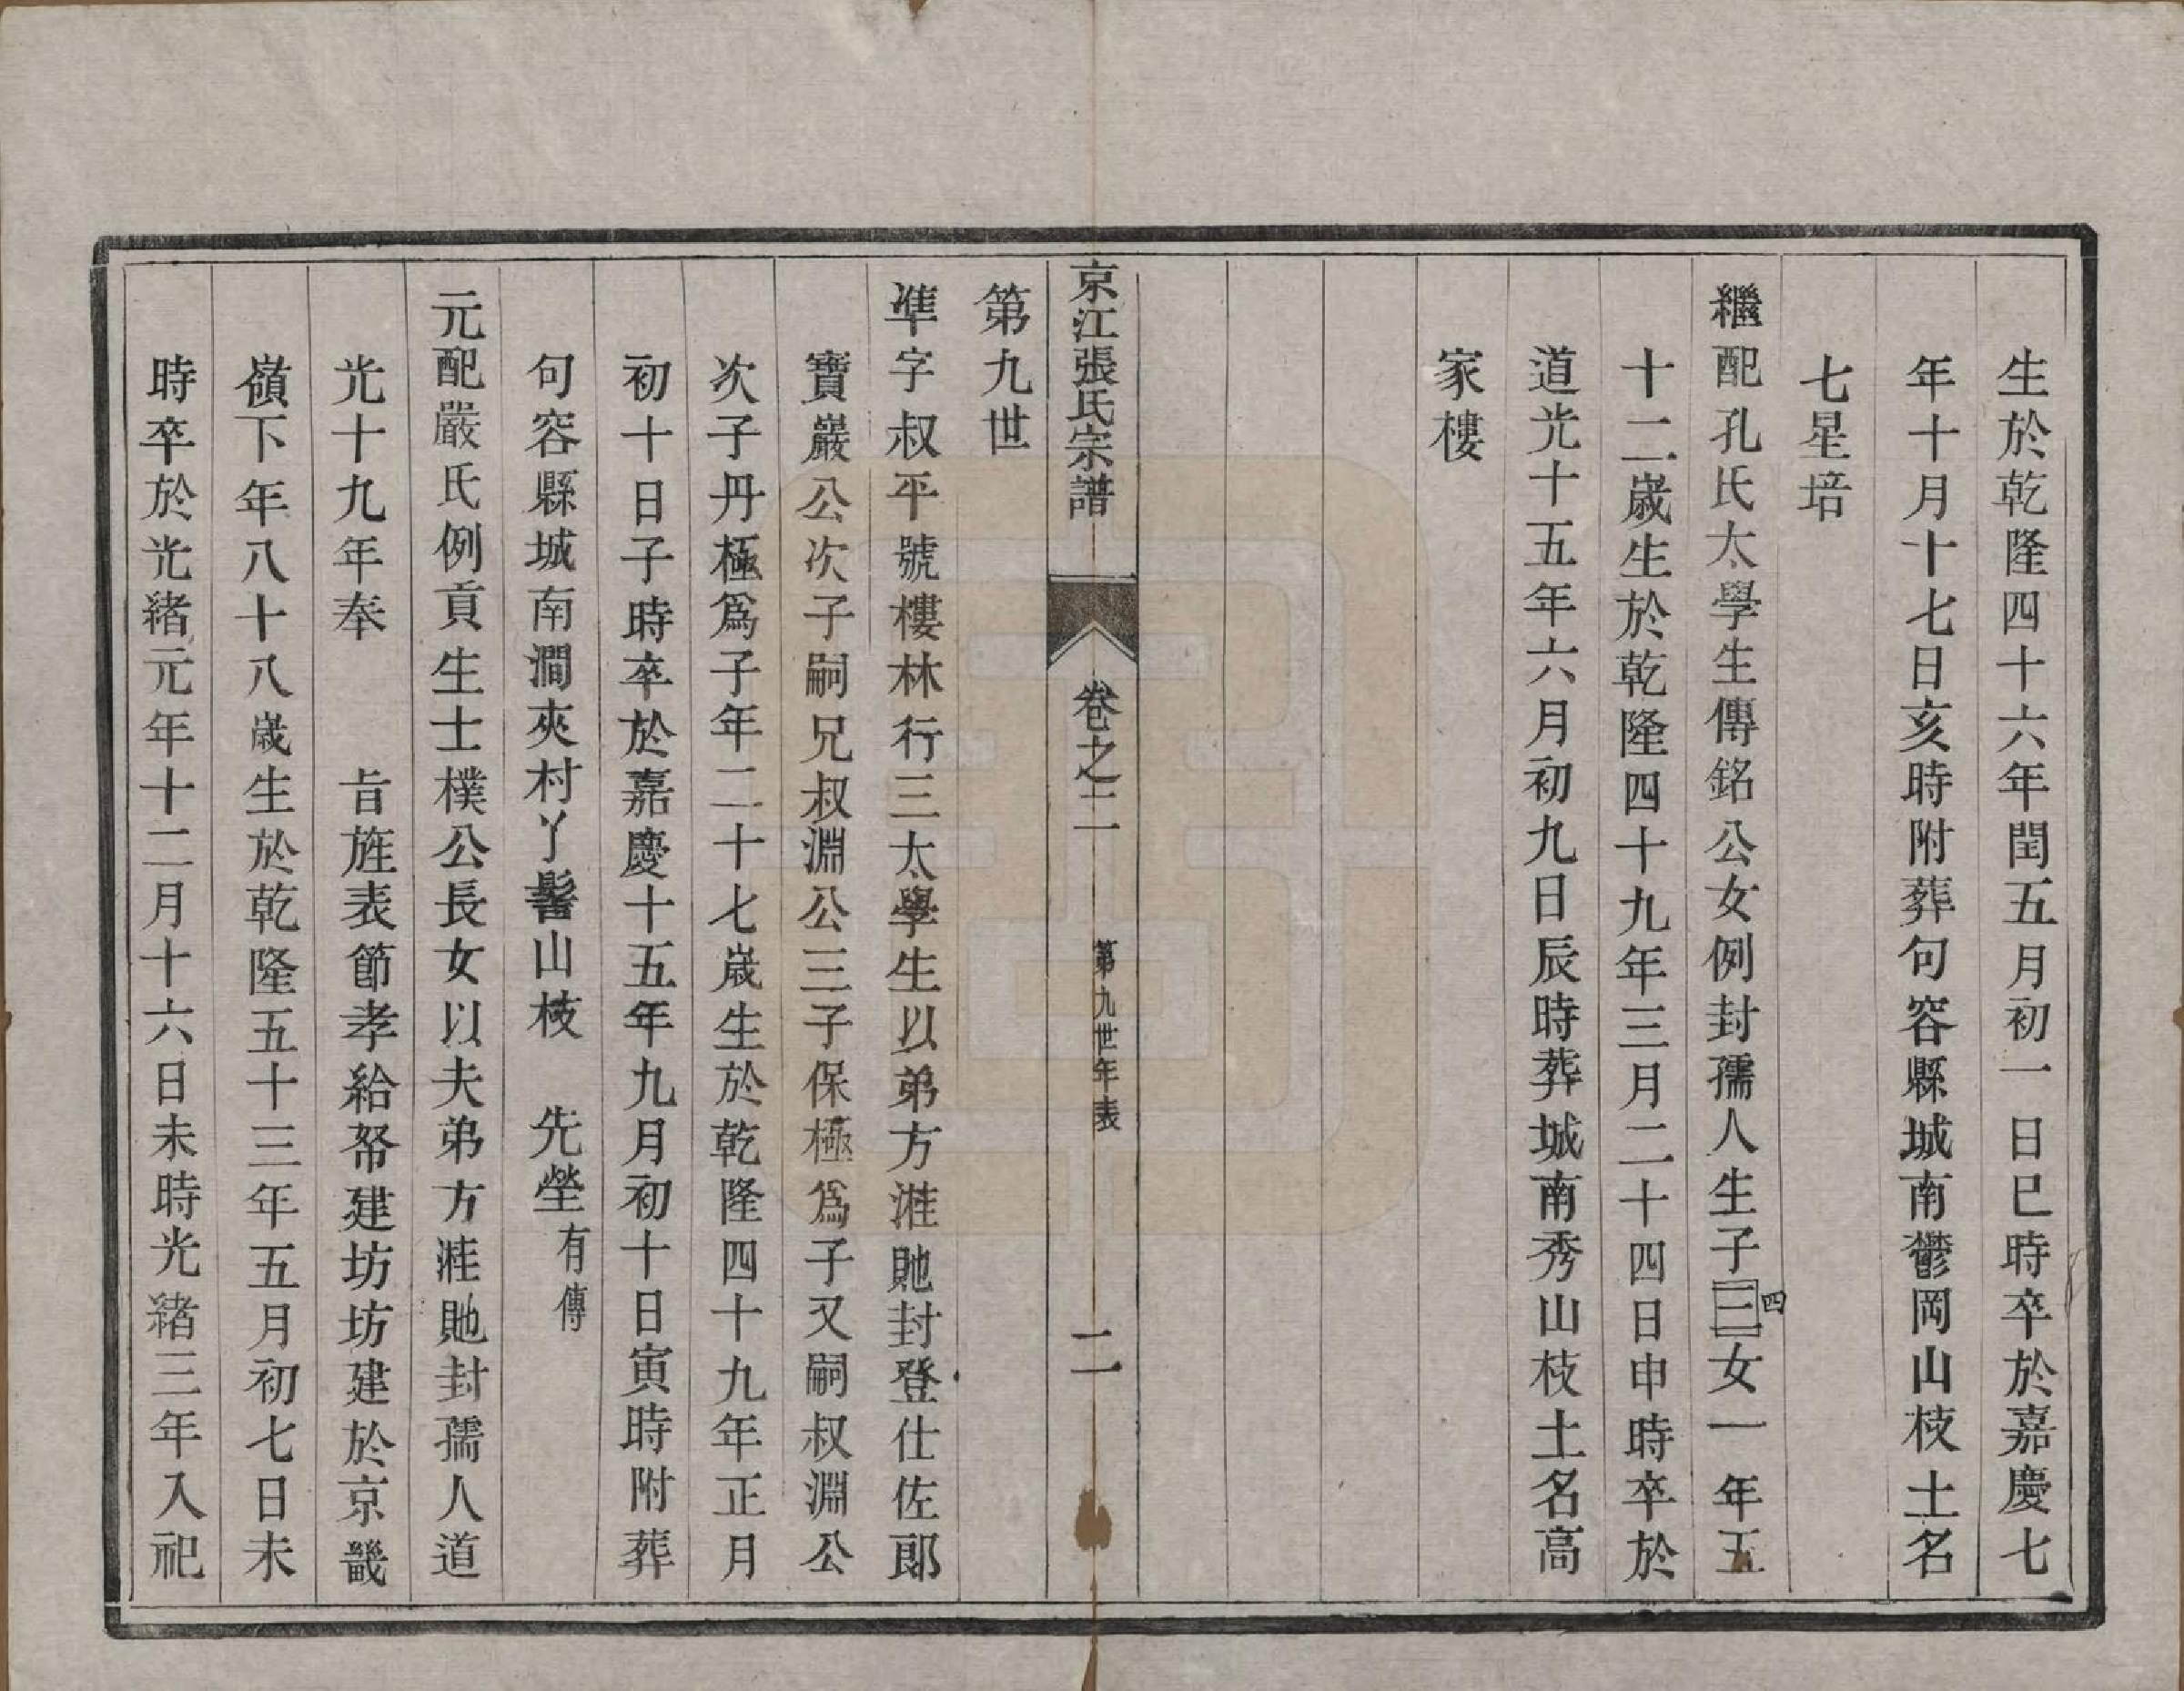 生於乾隆四十六年閏五月初一日巳時卒於嘉慶七
年十月十七日亥時附葬句容縣城南鬱岡山枝土名
七星培
繼配孔氏太學生傳銘公女例封孺人生子三四女一年五
十二歲生於乾隆四十九年三月二十四日申時卒於
道光十五年六月初九日辰時葬城南秀山枝土名高
家樓
京江張氏宗譜 卷之二 第九世年表 二
第九世
準字叔平號樓林行三太學生以弟方淮貤封登仕佐郎
寶巖公次子嗣兄叔淵公三子保極爲子又嗣叔淵公
次子丹極爲子年二十七歲生於乾隆四十九年正月
初十日子時卒於嘉慶十五年九月初十日寅時附葬
句容縣城南澗夾村丫髻山枝 先塋有傳
元配嚴氏例貢生士樸公長女以夫弟方淮貤封孺人道
光十九年奉 旨旌表節孝給帑建坊坊建於京畿
嶺下年八十八歲生於乾隆五十三年五月初七日未
時卒於光緒元年十二月十六日未時光緒三年入祀